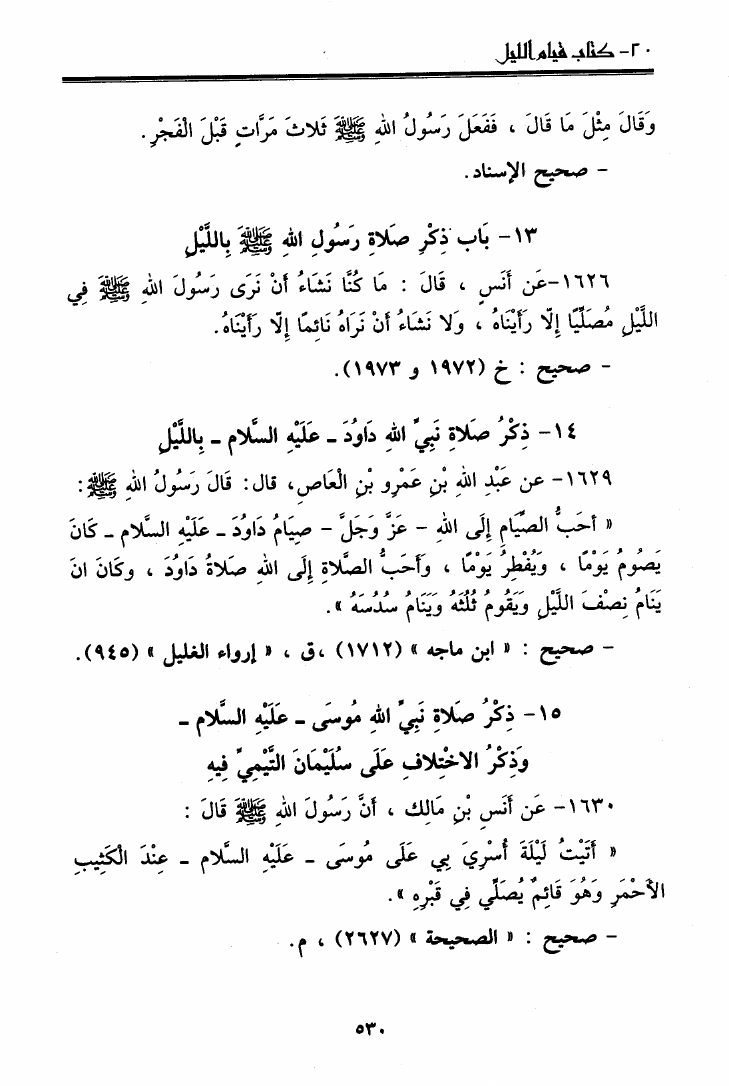 ٢٠- كتاب قيام الليل
وَقَالَ مِثْلَ مَا قَالَ ، فَفَعَلَ رَسُولُ اللهِ ﷺ ثَلاثَ مَرَّاتٍ قَبْلَ الْفَجْرِ.
- صحيح الإسناد.
١٣- بَاب ذِكْرِ صَلاةِ رَسُولِ اللهِ ﷺ بِاللَّيْلِ
١٦٢٦-عَن أَنَسٍ ، قَالَ : مَا كُنَّا نَشَاءُ أَنْ نَرَى رَسُولَ اللهِ ﷺ فِي
اللَّيْلِ مُصَلِّيًا إِلّا رَأَيْنَاهُ ، وَلا نَشَاءُ أَنْ نَرَاهُ نَائِمًا إِلّا رَأَيْنَاهُ.
- صحيح : خ (١٩٧٢ و ١٩٧٣).
١٤- ذِكْرُ صَلاةِ نَبِيِّ اللهِ دَاوُدَ ـ عَلَيْهِ السَّلام ـ بِاللَّيْلِ
١٦٢٩- عن عَبْدِ اللهِ بْنِ عَمْرِو بْنِ الْعَاصِ، قال: قَالَ رَسُولُ اللهِ ﷺ :
« أَحَبُّ الصِّيَامِ إِلَى اللهِ - عَزَّ وَجَلَّ - صِيَامُ دَاوُدَ ـ عَلَيْهِ السَّلام ـ كَانَ
يَصُومُ يَوْمًا ، وَيُفْطِرُ يَوْمًا ، وَأَحَبُّ الصَّلاةِ إِلَى اللهِ صَلاةُ دَاوُدَ ، وكَانَ انَ
يَنَامُ نِصْفَ اللَّيْلِ وَيَقُومُ ثُلُثَهُ وَيَنَامُ سُدُسَهُ ».
- صحيح : « ابن ماجه » (١٧١٢) ،ق ، « إرواء الغليل » (٩٤٥).
١٥- ذِكْرُ صَلاةِ نَبِيِّ اللهِ مُوسَى ـ عَلَيْهِ السَّلام ـ
وَذِكْرُ الاخْتِلافِ عَلَى سُلَيْمَانَ التَّيْمِيِّ فِيهِ
١٦٣٠- عَن أَنَسِ بْنِ مَالِك ، أَنَّ رَسُولَ اللهِ ﷺ قَالَ :
« أَتَيْتُ لَيْلَةَ أُسْرِيَ بِي عَلَى مُوسَى ـ عَلَيْهِ السَّلام ـ عِنْدَ الْكَثِيبِ
الأَحْمَرِ وَهُوَ قَائِمٌ يُصَلِّي فِي قَبْرِهِ ».
- صحيح : « الصحيحة » (٢٦٢٧) ، م.
٥٣٠